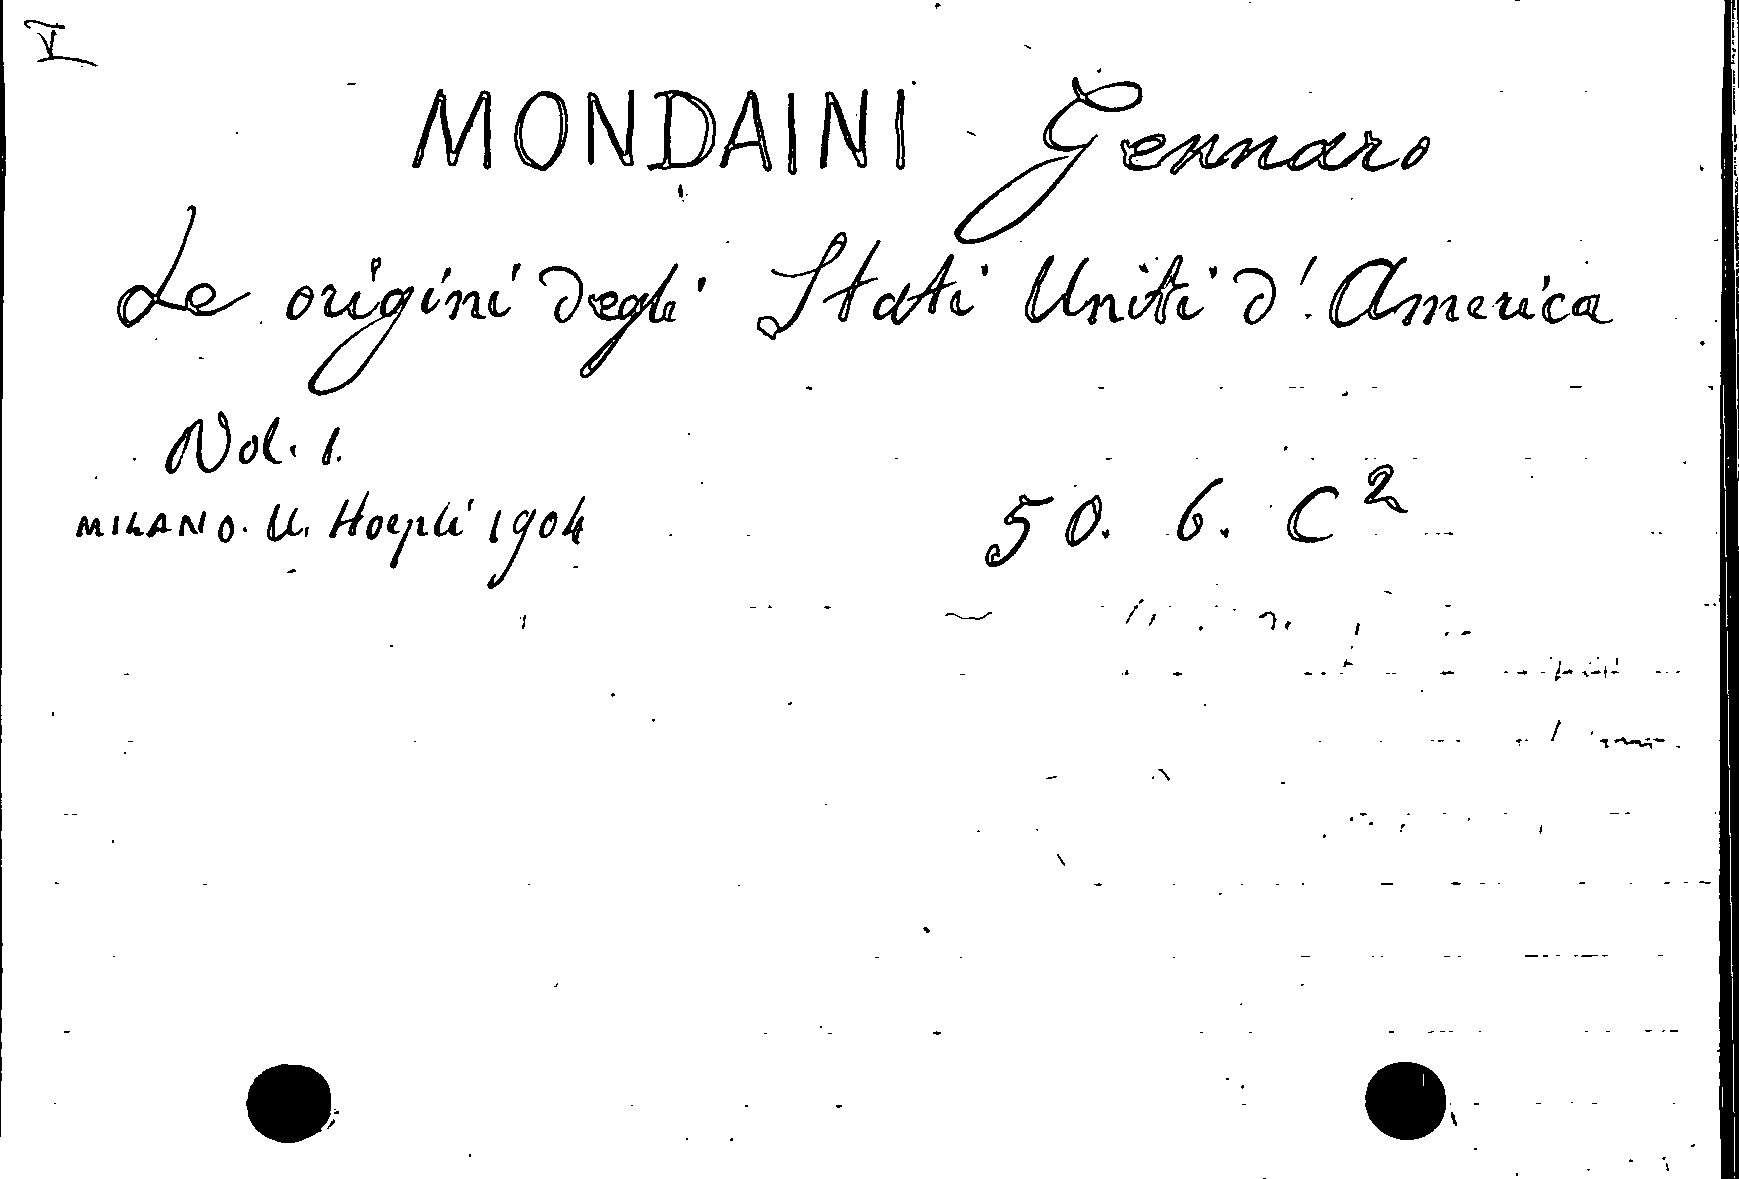 V
MONDAINI Gennaro
Le origini degli Stati Uniti d'America
Vol. 1.
MILANO. U. Hoepli 1904
50. 6. C²